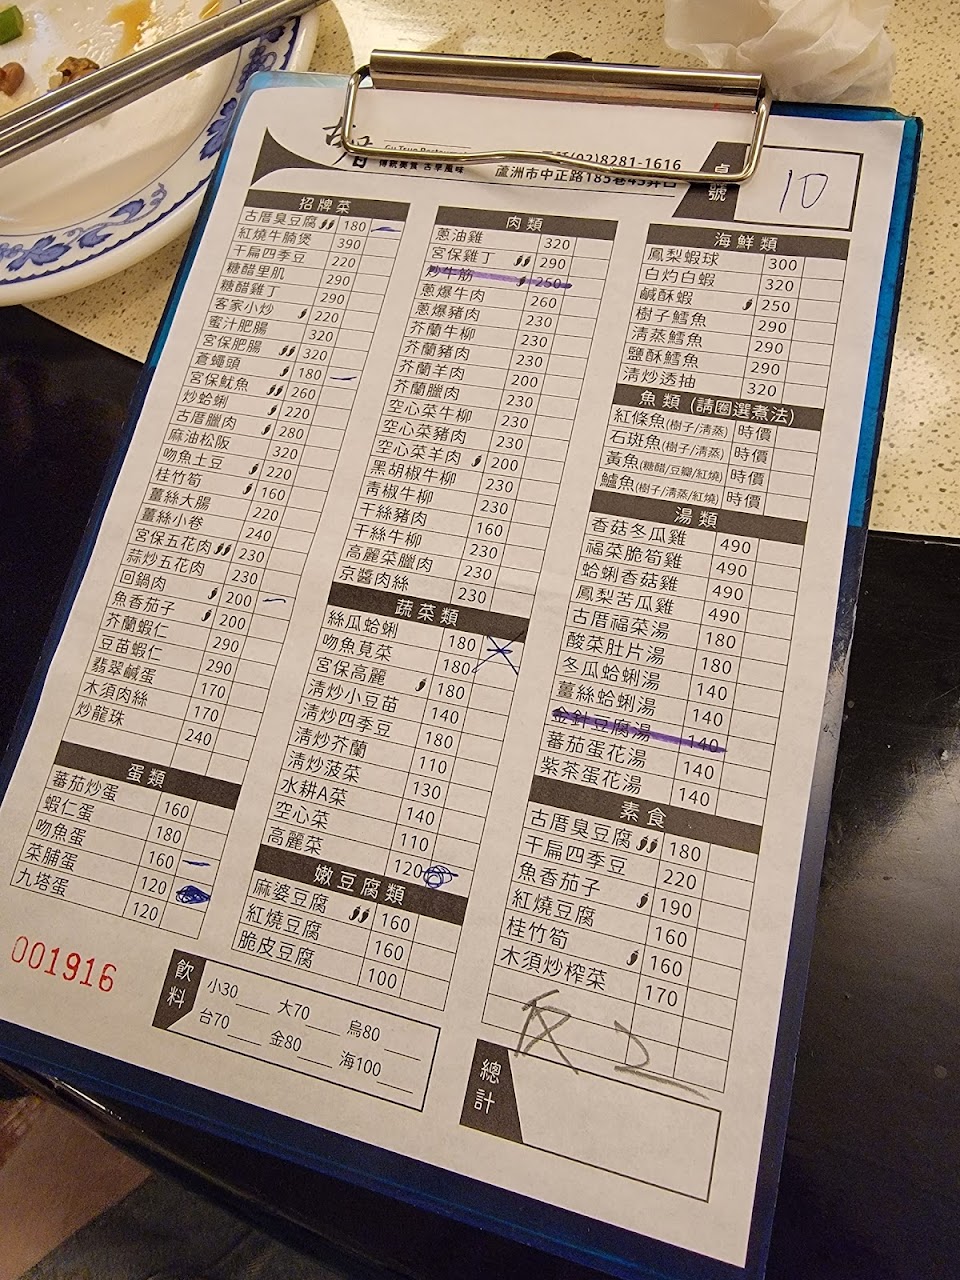 古厝
Gu Tsuo Restaurant
傳統美食 古早風味
(02)8281-1616
蘆洲市中正路185巷43弄口
桌號 10
招牌菜
古厝臭豆腐 180
紅燒牛腩煲 390
干扁四季豆 220
糖醋里肌 290
糖醋雞丁 290
客家小炒 220
蜜汁肥腸 320
宮保肥腸 320
蒼蠅頭 180
宮保魷魚 260
炒蛤蜊 220
古厝臘肉 280
麻油松阪 320
吻魚土豆 220
桂竹筍 160
薑絲大腸 220
薑絲小卷 240
宮保五花肉 230
蒜炒五花肉 230
回鍋肉 200
魚香茄子 200
芥蘭蝦仁 290
豆苗蝦仁 290
翡翠鹹蛋 170
木須肉絲 170
炒龍珠 240
蛋類
蕃茄炒蛋 160
蝦仁蛋 180
吻魚蛋 160
菜脯蛋 120
九塔蛋 120
001916
肉類
蔥油雞 320
宮保雞丁 290
炒牛筋 250
蔥爆牛肉 260
蔥爆豬肉 230
芥蘭牛柳 230
芥蘭豬肉 230
芥蘭羊肉 200
芥蘭臘肉 230
空心菜牛柳 230
空心菜豬肉 230
空心菜羊肉 200
黑胡椒牛柳 230
青椒牛柳 230
干絲豬肉 160
干絲牛柳 230
高麗菜臘肉 230
京醬肉絲 230
蔬菜類
絲瓜蛤蜊 180
吻魚莧菜 180
宮保高麗 180
清炒小豆苗 140
清炒四季豆 180
清炒芥蘭 110
清炒菠菜 130
水耕A菜 140
空心菜 110
高麗菜 120
嫩豆腐類
麻婆豆腐 160
紅燒豆腐 160
脆皮豆腐 100
飲料
小30 大70 烏80
台70 金80 海100
海鮮類
鳳梨蝦球 300
白灼白蝦 320
鹹酥蝦 250
樹子鱈魚 290
清蒸鱈魚 290
鹽酥鱈魚 290
清炒透抽 320
魚類 (請圈選煮法)
紅條魚(樹子/清蒸) 時價
石斑魚(樹子/清蒸) 時價
黃魚(糖醋/豆瓣/紅燒) 時價
鱸魚(樹子/清蒸/紅燒) 時價
湯類
香菇冬瓜雞 490
福菜脆筍雞 490
蛤蜊香菇雞 490
鳳梨苦瓜雞 490
古厝福菜湯 180
酸菜肚片湯 180
冬瓜蛤蜊湯 140
薑絲蛤蜊湯 140
金針豆腐湯 140
蕃茄蛋花湯 140
紫茶蛋花湯 140
素食
古厝臭豆腐 180
干扁四季豆 220
魚香茄子 190
紅燒豆腐 160
桂竹筍 160
木須炒榨菜 170
反 2
總計